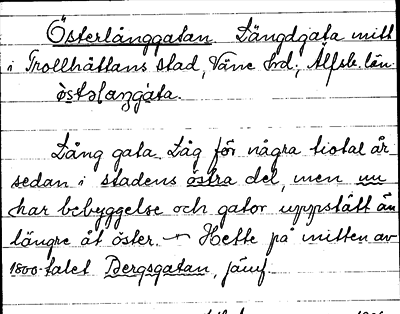 Österlånggatan. Längdgata mitt
i Trollhättans stad, Väne hrd; Älfsb. län.
östəlaŋgata.
Lång gata. Låg för några tiotal år
sedan i stadens östra del, men nu
har bebyggelse och gator uppstått än
längre åt öster. — Hette på mitten av
1800-talet Bergsgatan, jämf.